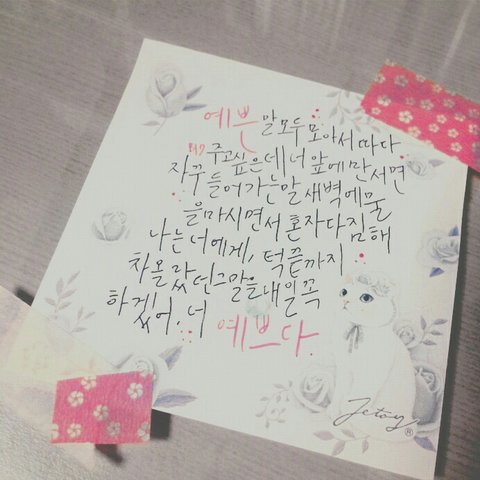 예쁜 말 모두 모아서 따다
다 주고싶은데 너 앞에만 서면
자꾸 들어가는 말 새벽에 물
을 마시면서 혼자 다짐해
나는 너에게, 턱 끝까지
차올랐던 그 말을 내일 꼭
하겠어. 너 예쁘다.
Jetoy®